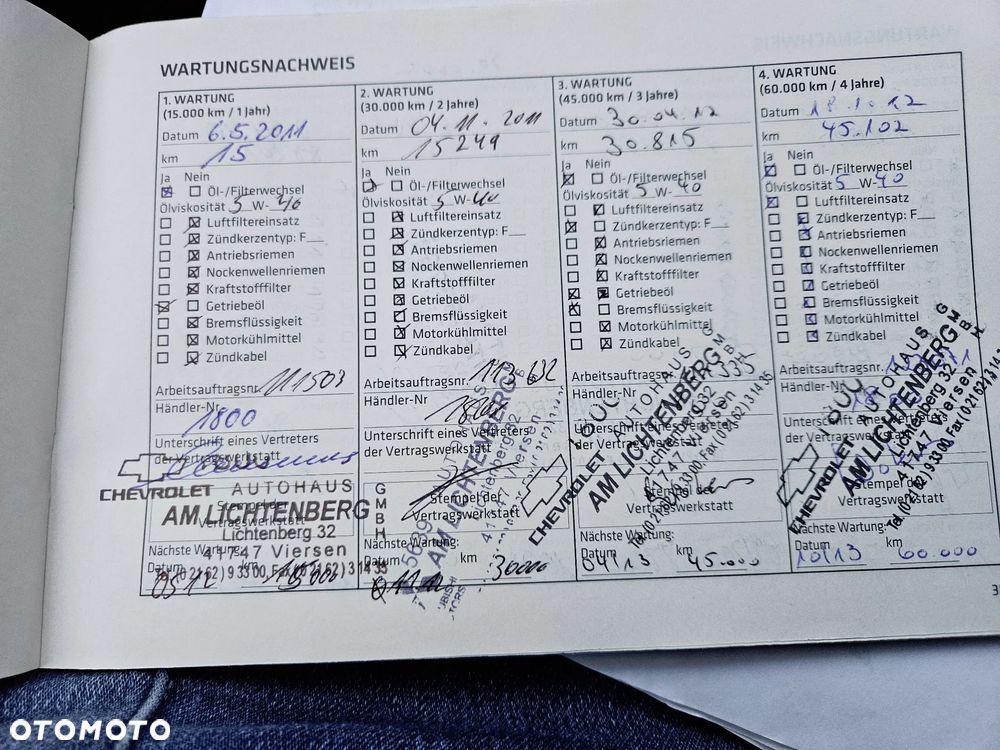 WARTUNGSNACHWEIS
1. WARTUNG
(15.000 km / 1 Jahr)
Datum 6.5.2011
km 15
Ja Nein
Öl-/Filterwechsel
Ölviskosität 5 W-
Luftfiltereinsatz
Zündkerzentyp: F
Antriebsriemen
Nockenwellenriemen
Kraftstofffilter
Getriebeöl
Bremsflüssigkeit
Motorkühlmittel
Zündkabel
Arbeitsauftragsnr. 111503
Händler-Nr.
1800
Unterschrift eines Vertreters
der Vertragswerkstatt
CHEVROLET AUTOHAUS
Stempel der
Vertragswerkstatt
AM LICHTENBERG
GMBH
Lichtenberg 32
41747 Viersen
Tel. (0 21 62) 9 33 00, Fax (0 21 62) 3 14 35
Nächste Wartung:
Datum km
05.12
2. WARTUNG
(30.000 km / 2 Jahre)
Datum 04.11.2011
km 15249
Ja Nein
Öl-/Filterwechsel
Ölviskosität 5 W-40
Luftfiltereinsatz
Zündkerzentyp: F
Antriebsriemen
Nockenwellenriemen
Kraftstofffilter
Getriebeöl
Bremsflüssigkeit
Motorkühlmittel
Zündkabel
Arbeitsauftragsnr. 113 632
Händler-Nr.
Unterschrift eines Vertreters
der Vertragswerkstatt
AM LICHTENBERG
Lichtenberg 32
Viersen
Stempel der
Vertragswerkstatt
Nächste Wartung:
Datum km
30000
3. WARTUNG
(45.000 km / 3 Jahre)
Datum 30.04.12
km 30.815
Ja Nein
Öl-/Filterwechsel
Ölviskosität 5 W-40
Luftfiltereinsatz
Zündkerzentyp: F
Antriebsriemen
Nockenwellenriemen
Kraftstofffilter
Getriebeöl
Bremsflüssigkeit
Motorkühlmittel
Zündkabel
Arbeitsauftragsnr.
Händler-Nr.
Unterschrift eines Vertreters
der Vertragswerkstatt
CHEVROLET AUTOHAUS
AM LICHTENBERG
GMBH
Lichtenberg 32
41747 Viersen
Stempel der
Vertragswerkstatt
Nächste Wartung:
Datum km
04/13 45.000
4. WARTUNG
(60.000 km / 4 Jahre)
Datum
km 45.102
Ja Nein
Öl-/Filterwechsel
Ölviskosität 5 W-40
Luftfiltereinsatz
Zündkerzentyp: F
Antriebsriemen
Nockenwellenriemen
Kraftstofffilter
Getriebeöl
Bremsflüssigkeit
Motorkühlmittel
Zündkabel
Arbeitsauftragsnr.
Händler-Nr.
Unterschrift eines Vertreters
der Vertragswerkstatt
CHEVROLET AUTOHAUS
AM LICHTENBERG
GMBH
Lichtenberg 32
41747 Viersen
Tel. (0 21 62) 9 33 00, Fax (0 21 62) 3 14 35
Stempel der
Vertragswerkstatt
Nächste Wartung:
Datum km
10/13 60.000
OTOMOTO